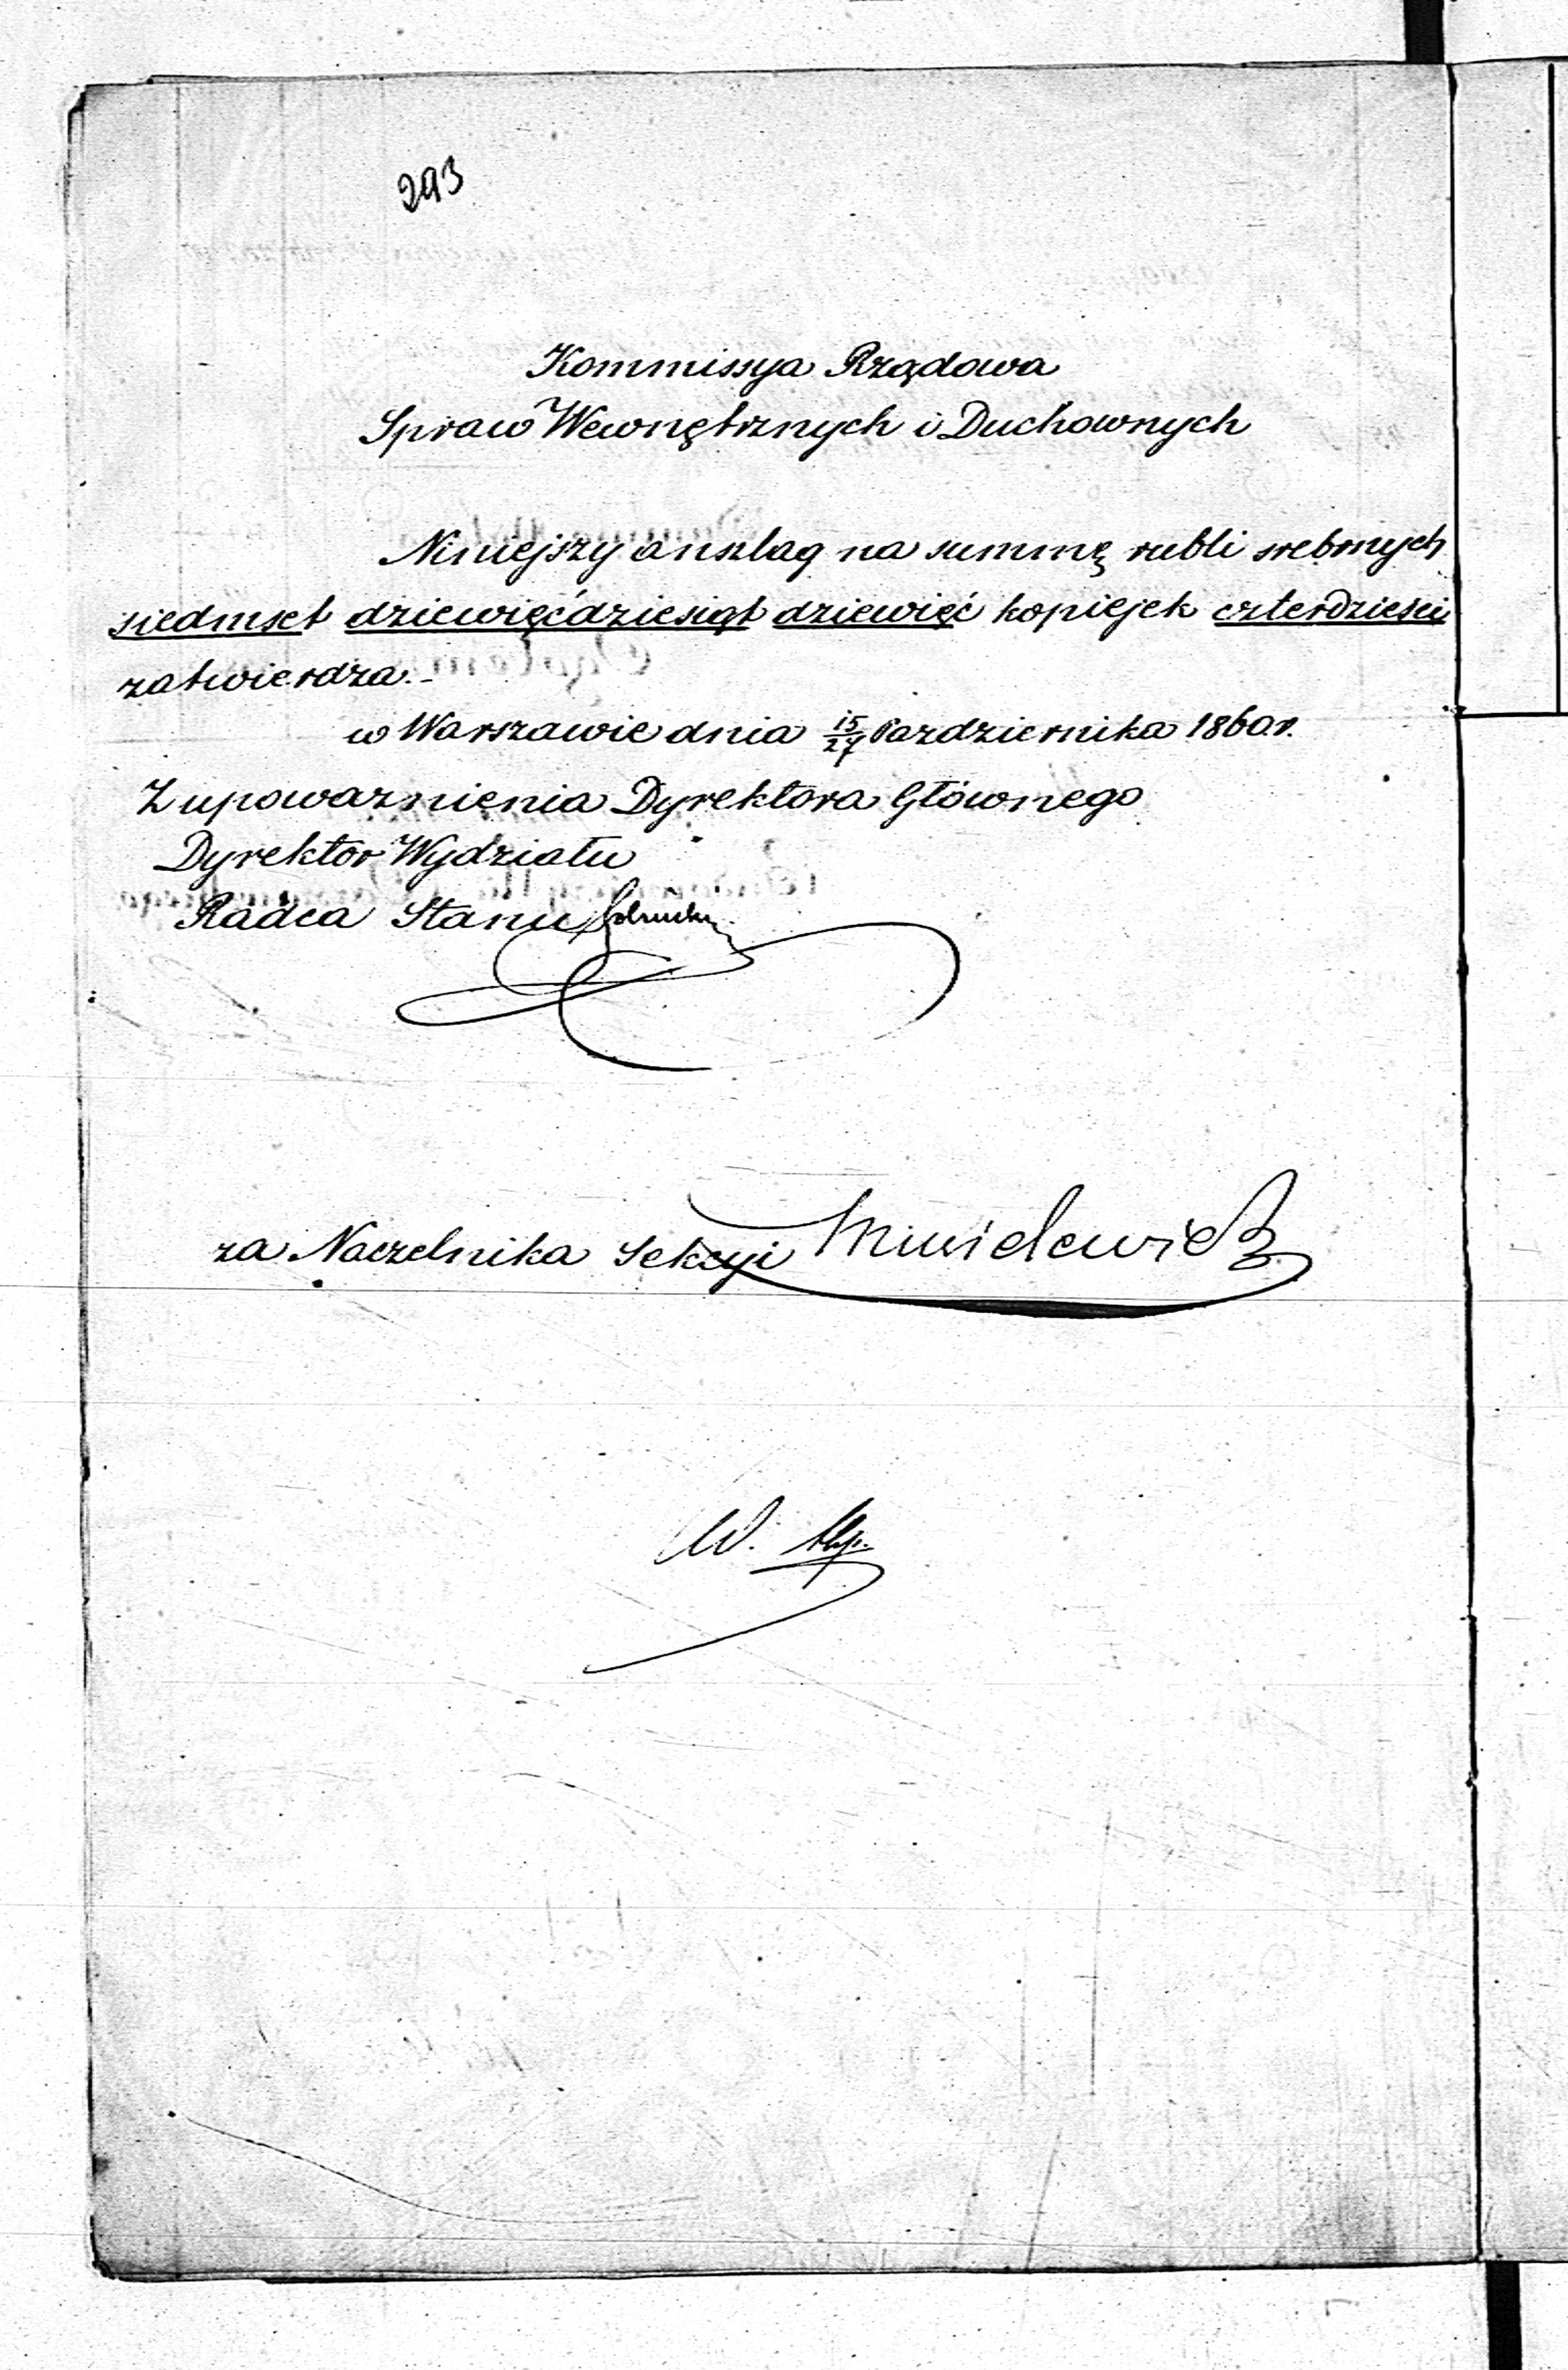 293
Kommissya Rządowa
Spraw Wewnętrznych i Duchownych
Niniejszy anszlag na summę rubli srebrnych
siedmset dziewięćdziesiąt dziewięć kopiejek czterdzieści
zatwierdza.-
w Warszawie dnia 15/27 Pazdziernika 1860 r.
Z upoważnienia Dyrektora Głównego
Dyrektor Wydziału
Radca Stanu
za Naczelnika Sekcyi
W.